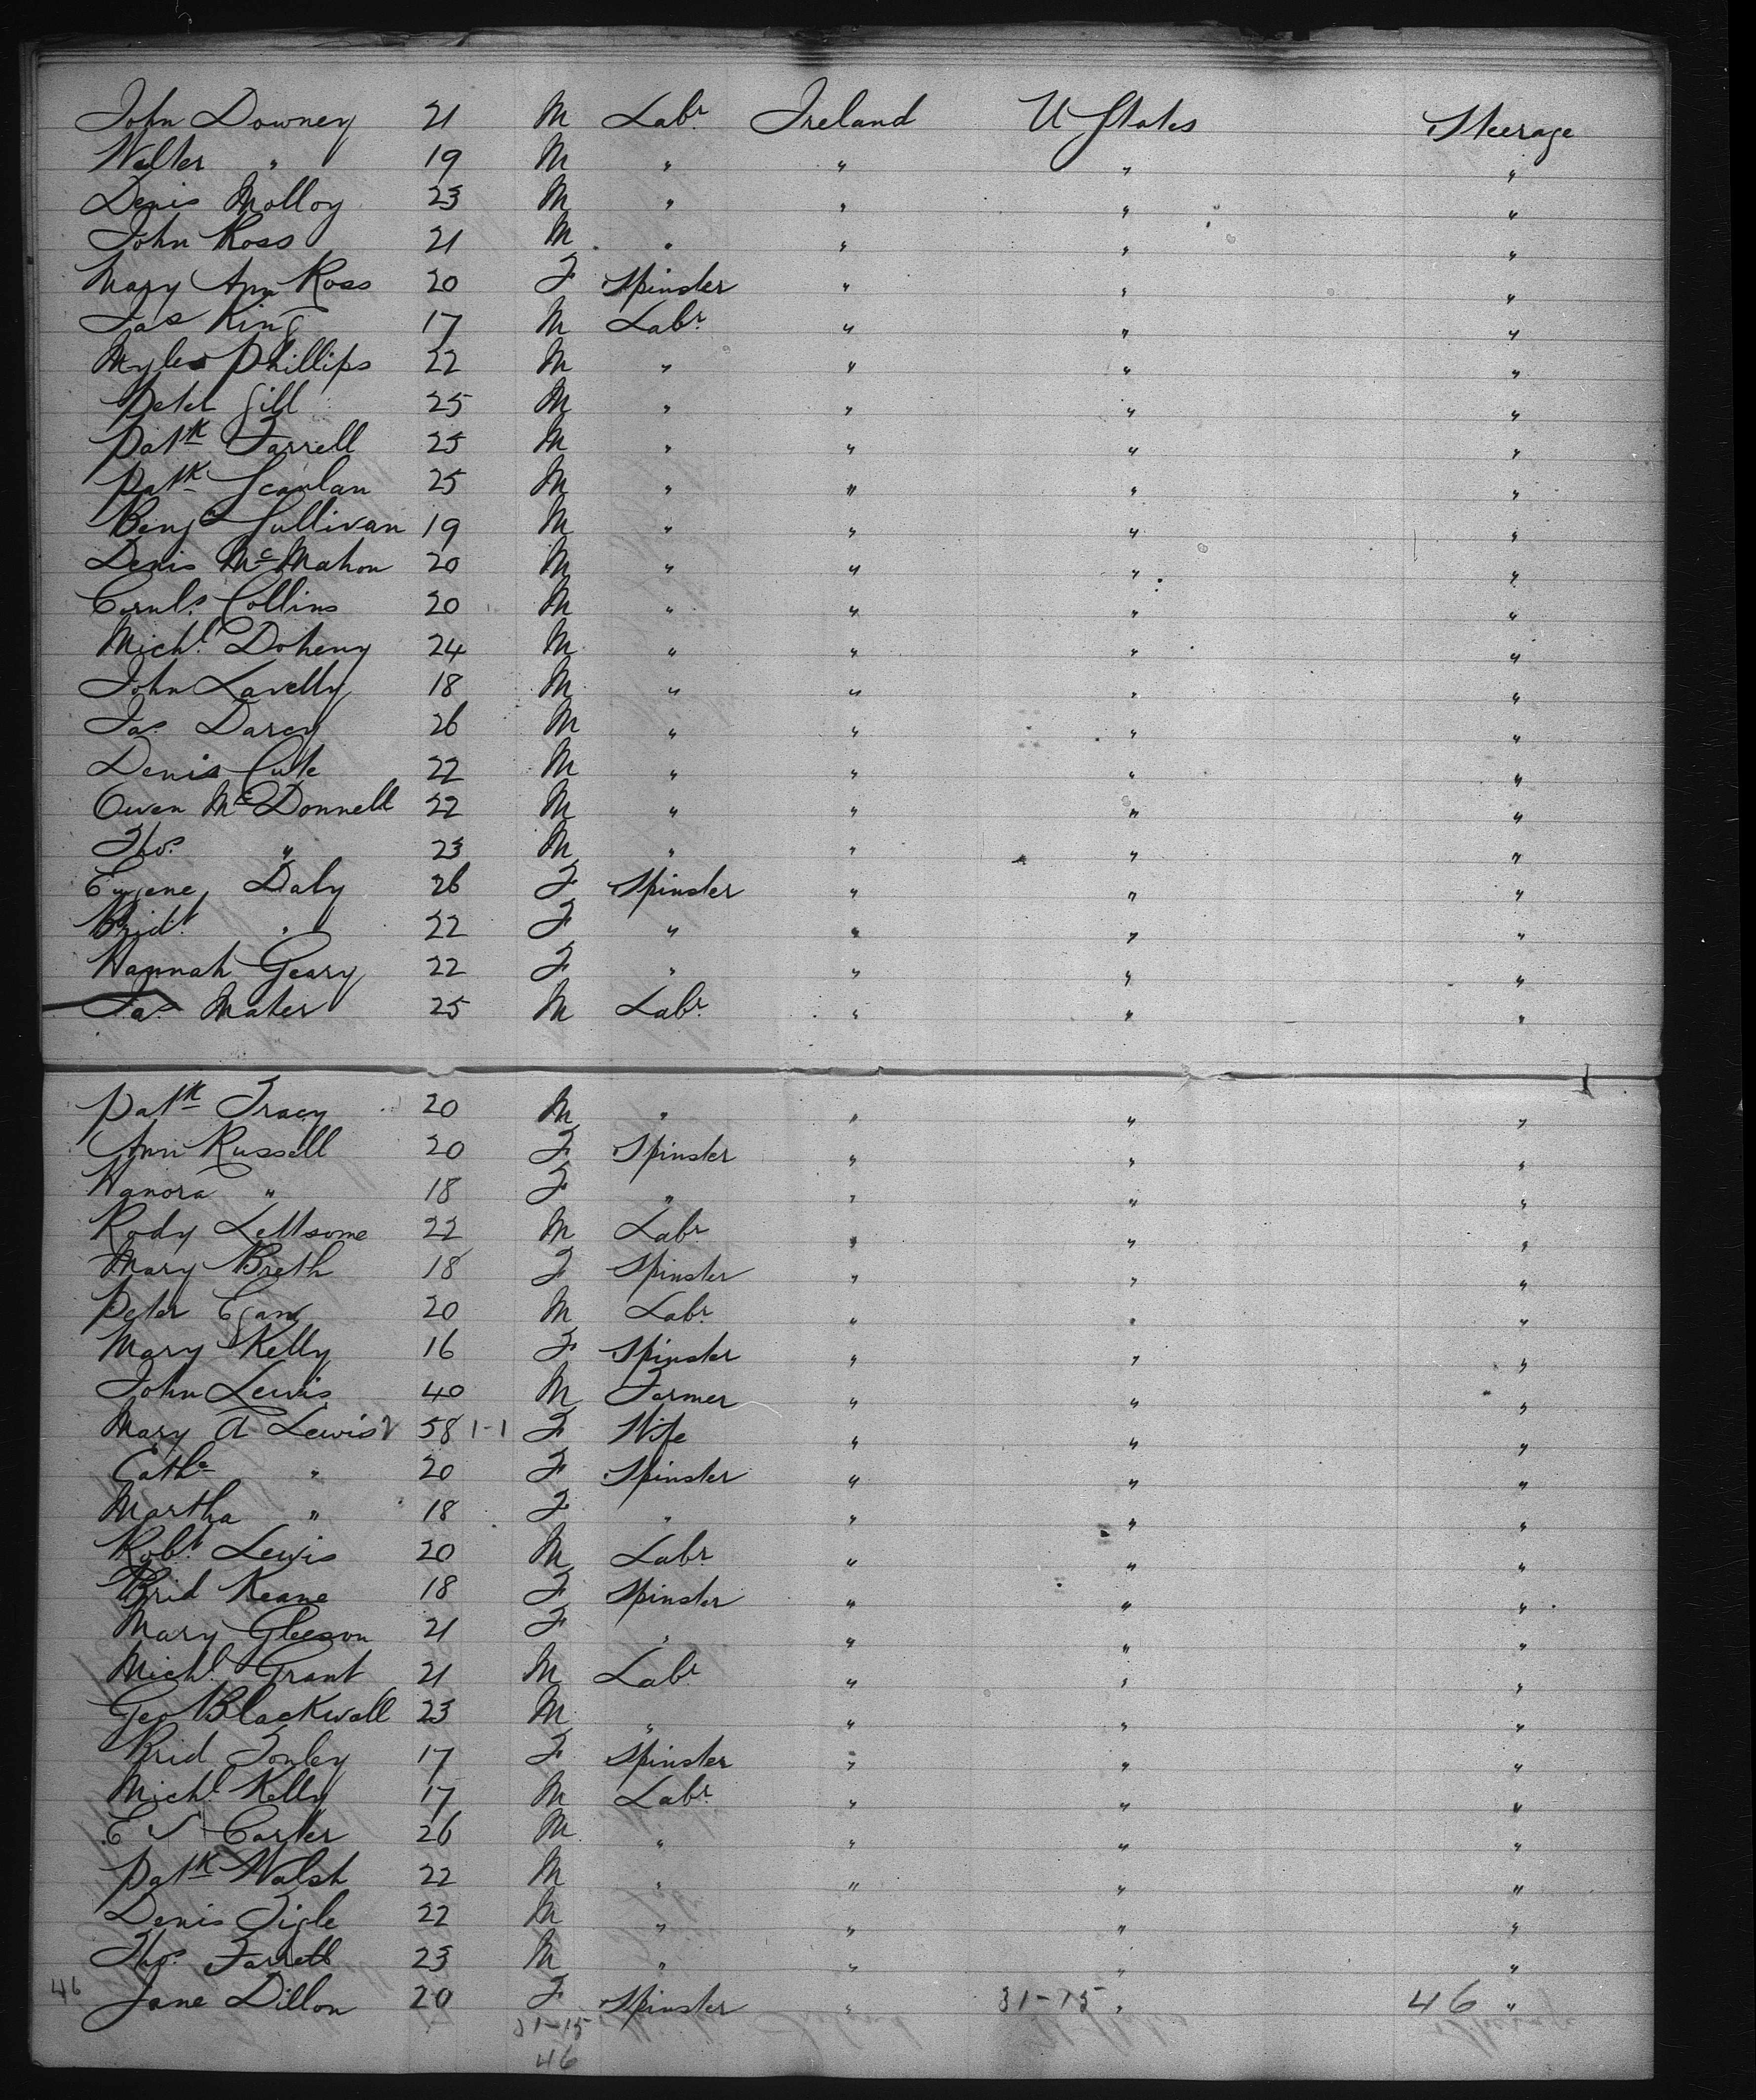 John Downey 21 M Labr Ireland U States Steerage
Walter " 19 M " " " "
Denis Molloy 23 M " " " "
John Ross 21 M " " " "
Mary Ann Ross 20 F Spinster " " "
Jas King 17 M Labr " " "
Myles Phillips 22 M " " " "
Peter Gill 25 M " " " "
Patk Farrell 25 M " " " "
Patk Scanlan 25 M " " " "
Benjn Sullivan 19 M " " " "
Denis McMahon 20 M " " " "
Cornls Collins 20 M " " " "
Michl Doheny 24 M " " " "
John Lavelly 18 M " " " "
Jas Darcy 26 M " " " "
Denis 22 M " " " "
Owen McDonnell 22 M " " " "
Thos " 23 M " " " "
Eugene Daly 26 F Spinster " " "
Bridt " 22 F " " " "
Hannah Geary 22 F " " " "
Jas Maher 25 M Labr " " "
Patk Tracy 20 M " " " "
Ann Russell 20 F Spinster " " "
Hanora " 18 F " " " "
Rody Lettsome 22 M Labr " " "
Mary Breth 18 F Spinster " " "
Peter Egan 20 M Labr " " "
Mary Kelly 16 F Spinster " " "
John Lewis 40 M Farmer " " "
Mary A Lewis 58 1-1 F Wife " " "
Cathe " 20 F Spinster " " "
Martha " 18 F " " " "
Robt Lewis 20 M Labr " " "
Brid Keane 18 F Spinster " " "
Mary Gleeson 21 F " " " "
Michl Grant 21 M Labr " " "
Geo Blackwall 23 M " " " "
Brid 17 F Spinster " " "
Michl Kelly 17 M Labr " " "
E Carter 26 M " " " "
Patk Walsh 22 M " " " "
Denis 22 M " " " "
Thos Farrell 23 M " " " "
46 Jane Dillon 20 F Spinster " 31-15 " 46 "
31-15
46